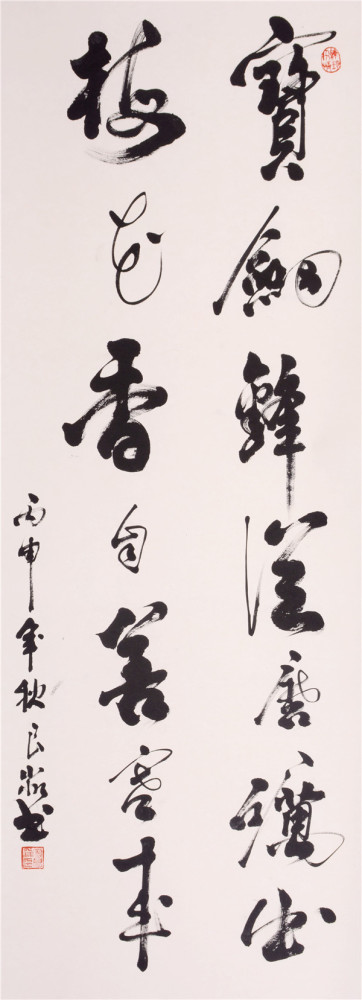 寶劍鋒從磨礪出
梅花香自苦寒來
丙申年秋良書